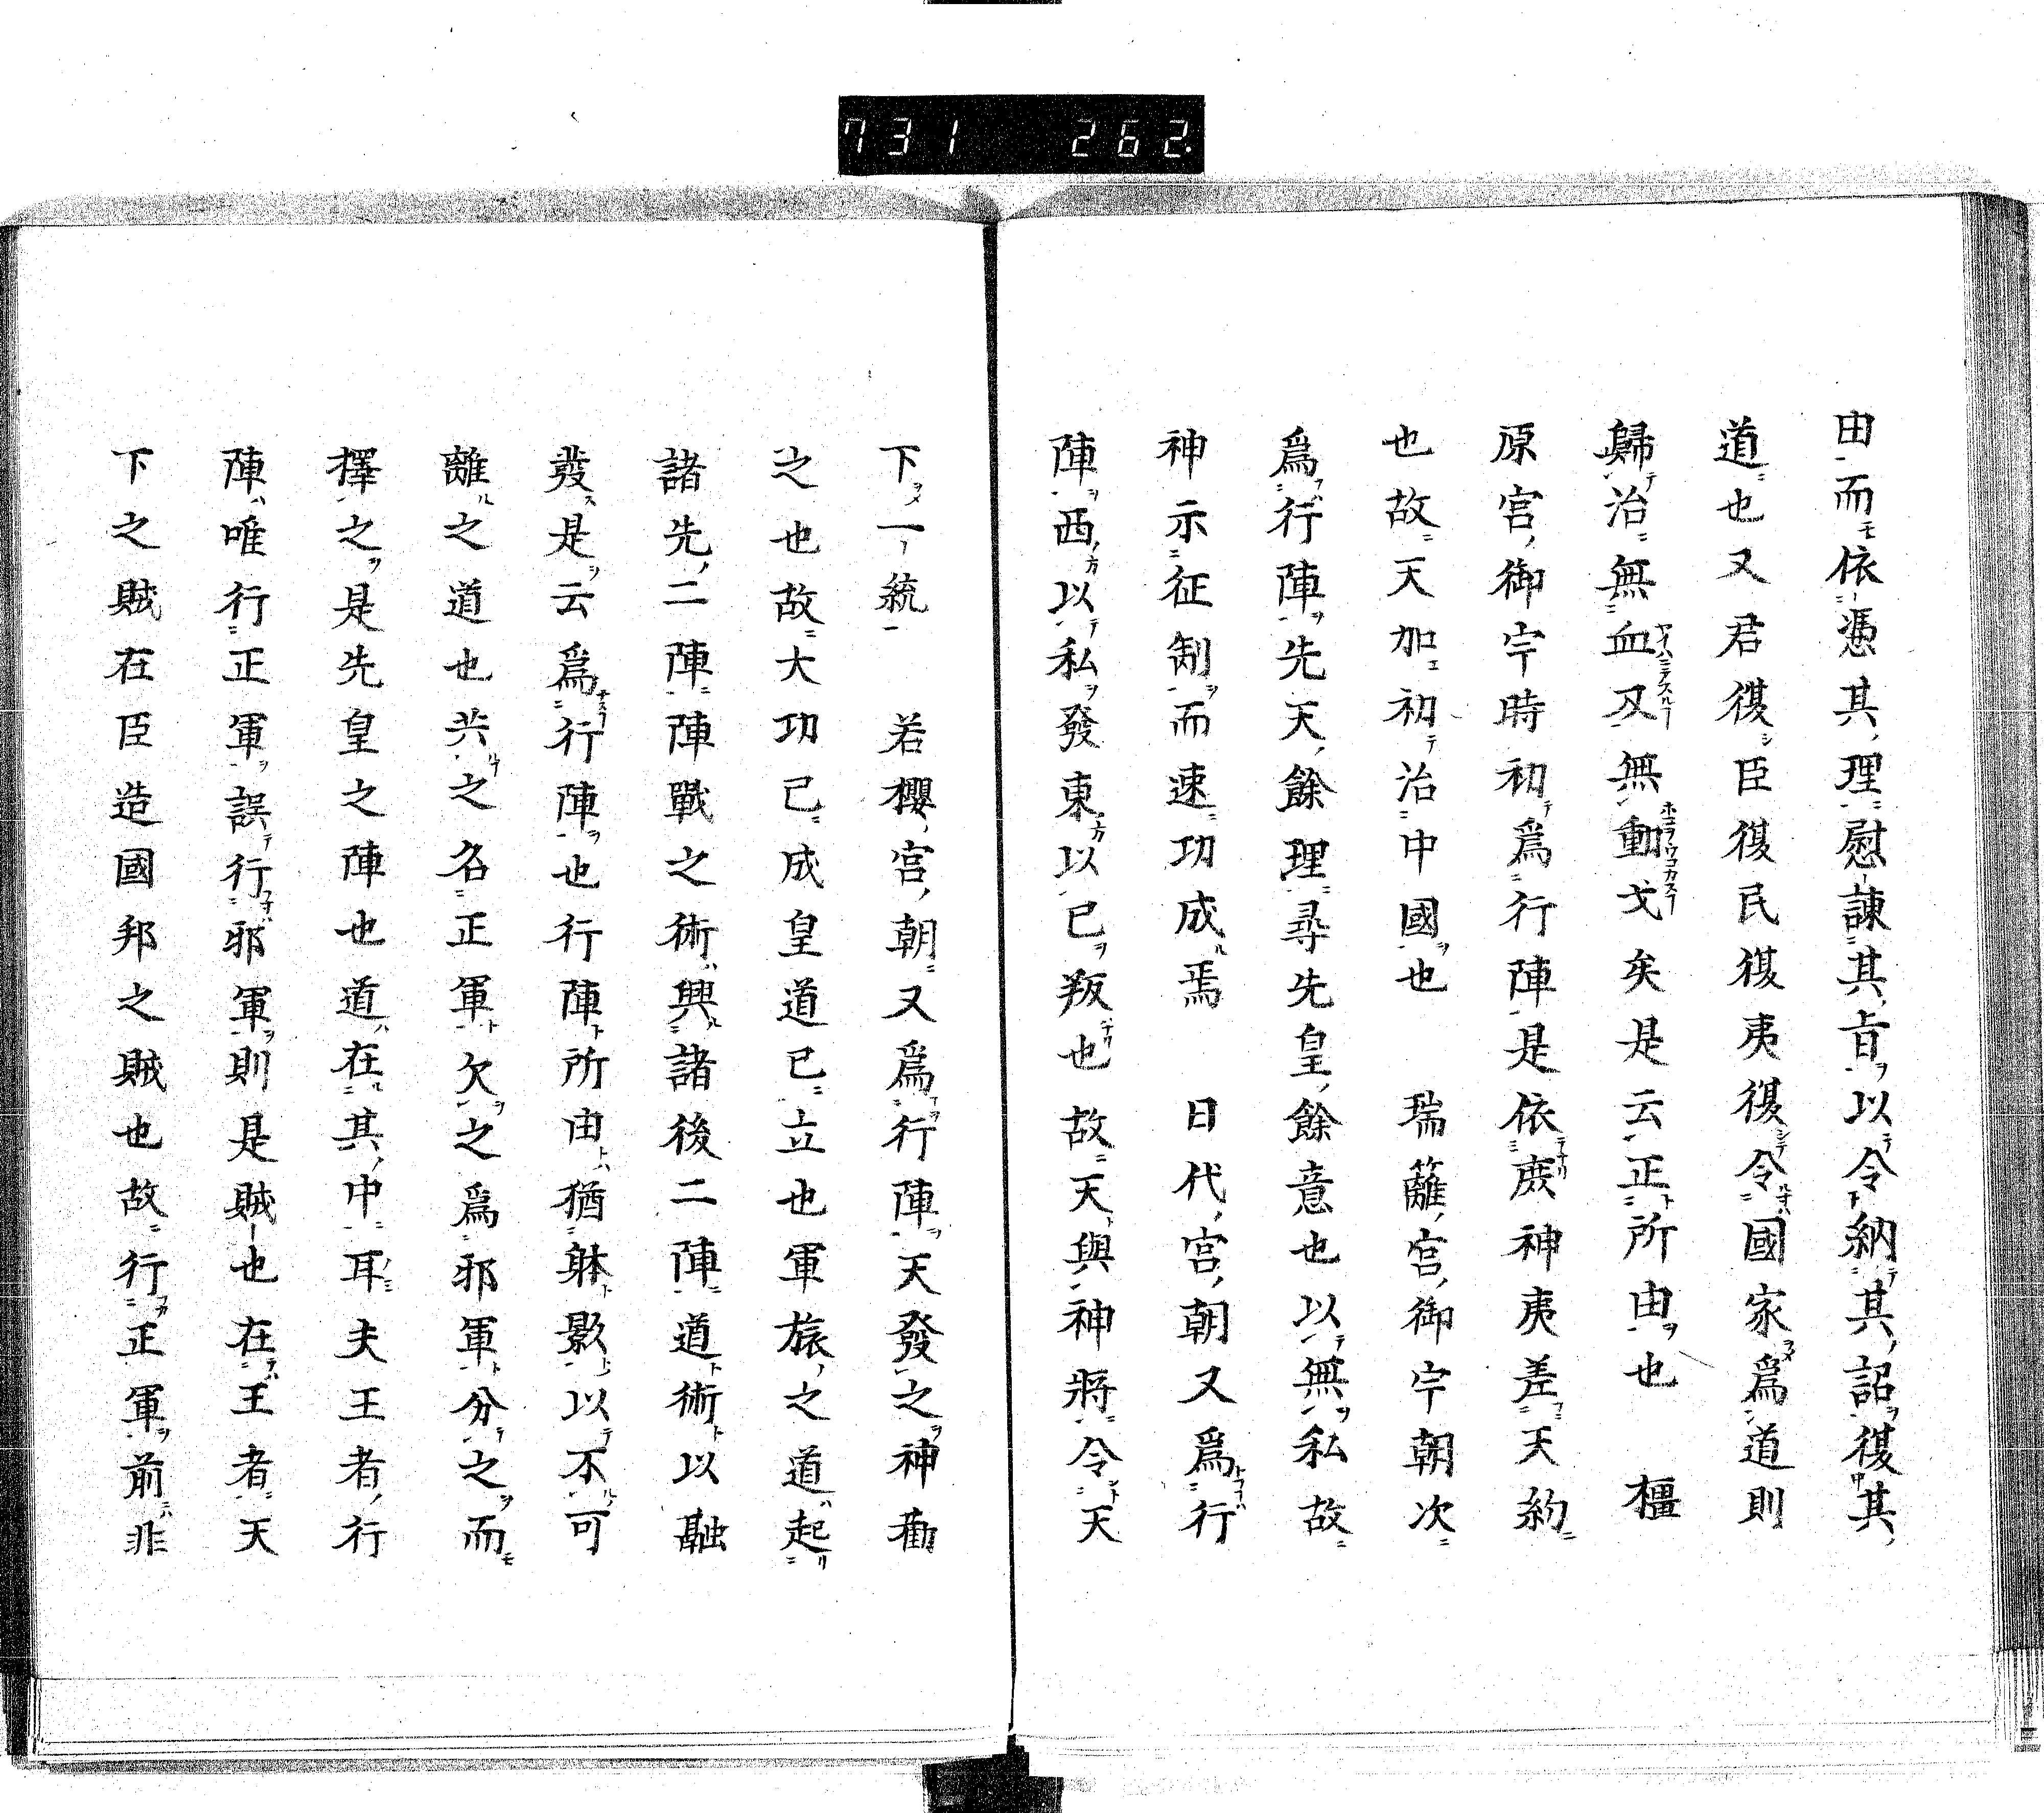 731 262.
由而依憑其理慰諫其旨以令納其詔復其
道也又君復臣復民復夷復令國家爲道則
歸治無血刃無動戈矣是云正所由也 橿
原宮御宇時初爲行陣是依庶神夷差天約
也故天加初治中國也 瑞籬宮御宇朝次
爲行陣先天餘理尋先皇餘意也以無私故
神示征制而速功成焉 日代宮朝又爲行
陣西以私發東以已叛也故天與神將令天
下一統 若櫻宮朝又爲行陣天發之神勸
之也故大功已成皇道已立也軍旅之道起
諸先二陣陣戰之術興諸後二陣道術以融
發是云爲行陣也行陣所由猶躰影以不可
離之道也共之名正軍欠之爲邪軍分之而
擇之是先皇之陣也道在其中耳夫王者行
陣唯行正軍誤行邪軍則是賊也在王者天
下之賊在臣造國邦之賊也故行正軍前非